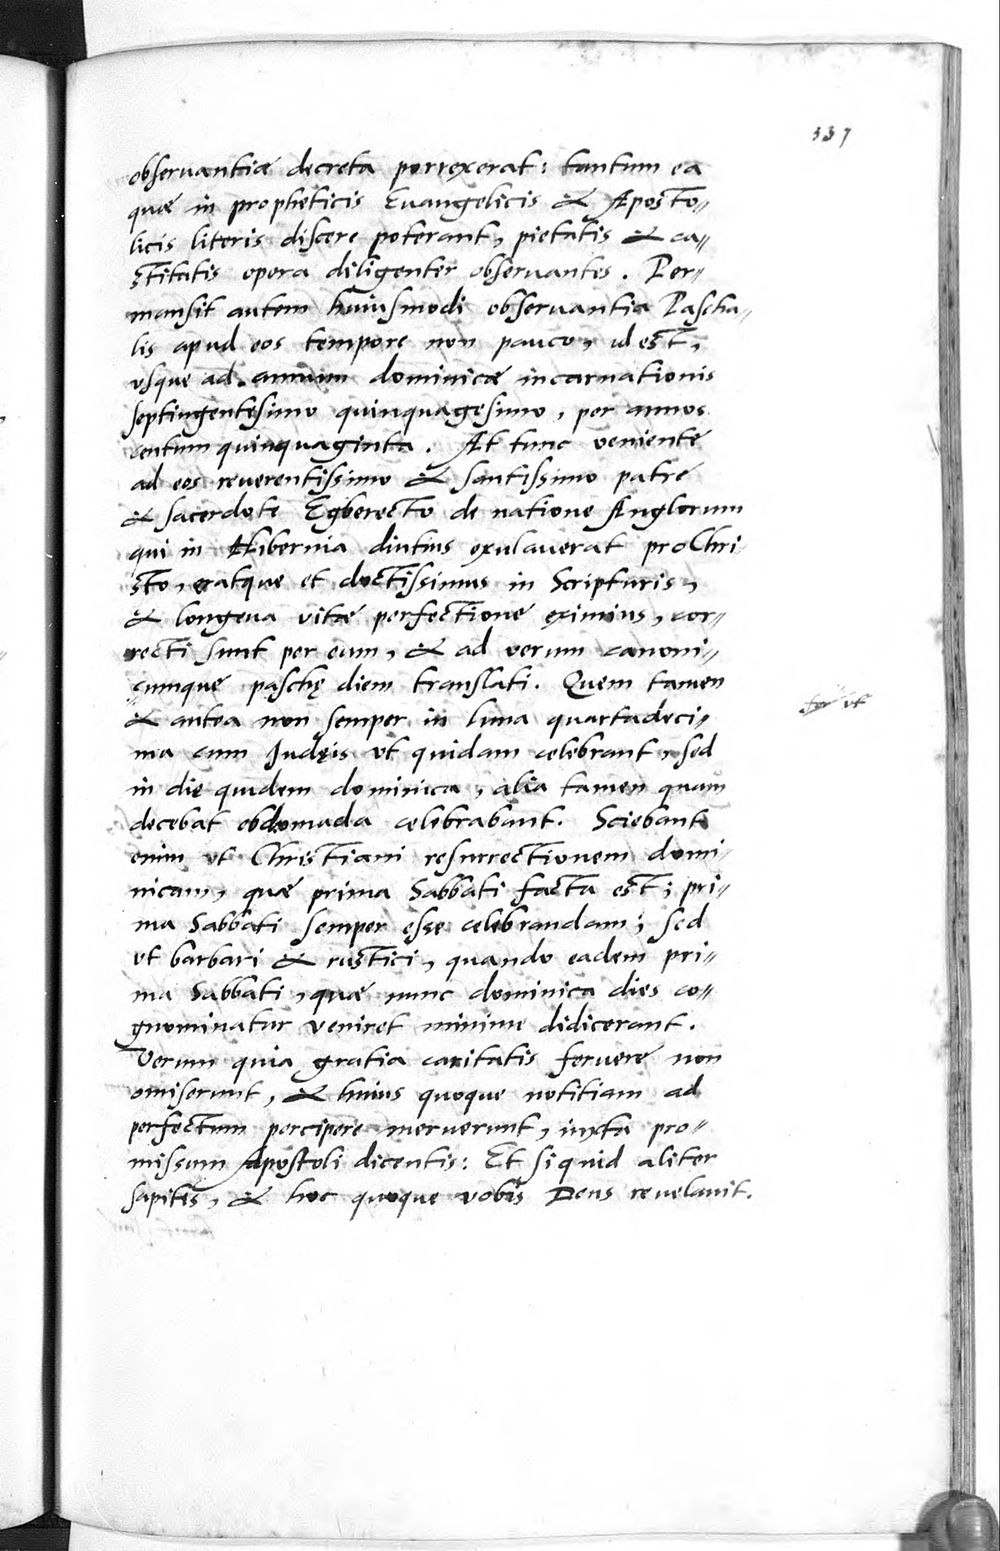 337
observantiæ decreta porrexerat: tantum ea
quæ in propheticis Euangelicis & Aposto〃
licis literis discere poterant, pietatis & ca〃
stitatis opera diligenter observantes. Per〃
mansit autem huiusmodi observantia Pascha〃
lis apud eos tempore non pauco, id est,
vsque ad annum dominicæ incarnationis
septingentesimo quinquagesimo, per annos
centum quinquaginta. At tunc veniente
ad eos reverentissimo & santissimo patre
& sacerdote Egberecto de natione Anglorum
qui in Hibernia diutius exulaverat pro Chri〃
sto, eratque et doctissimus in Scripturis,
& longeua vitæ perfectione eximius, cor〃
recti sunt per eum, & ad verum canoni〃
cumque paschę diem translati. Quem tamen
& antea non semper in luna quartadeci〃
ma cum Iudęis vt quidam celebrant, sed
in die quidem dominica, alia tamen quam
decebat ebdomada celibrabant. Sciebant
enim vt Christiani resurrectionem domi〃
nicam, quæ prima Sabbati facta est, pri〃
ma Sabbati semper esse celebrandam; sed
vt barbari & rustici, quando eadem pri〃
ma Sabbati, quæ nunc dominica dies co〃
gnominatur veniret minime didicerant.
Verum quia gratia caritatis fervere non
omiserunt, & huius quoque notitiam ad
perfectum percipere meruerunt, iuxta pro〃
missum Apostoli dicentis: Et siquid aliter
sapitis, & hoc quoque vobis Deus revelavit.
vt